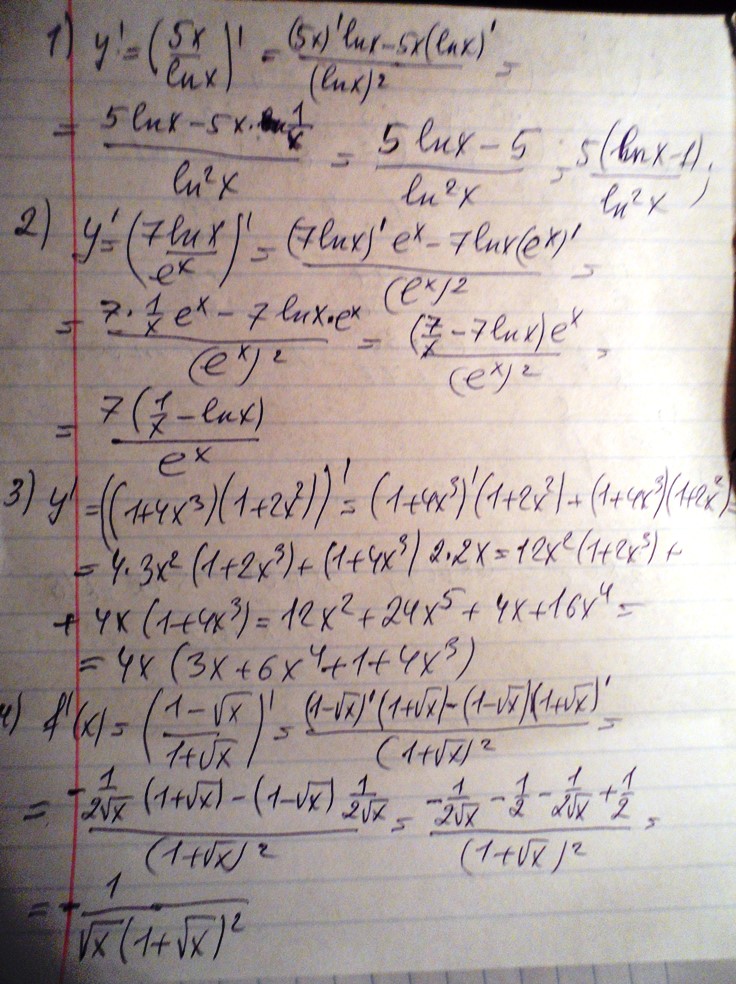 1) y' = (5x/lnx)' = ((5x)' lnx - 5x(lnx)')/(lnx)² =
= (5 lnx - 5x · 1/x)/ln²x = (5 lnx - 5)/ln²x = 5(lnx-1)/ln²x ;
2) y' = (7lnx/eˣ)' = ((7lnx)' eˣ - 7lnx(eˣ)')/(eˣ)² =
= (7 · 1/x eˣ - 7 lnx · eˣ)/(eˣ)² = ((7/x - 7lnx)eˣ)/(eˣ)² =
= 7(1/x - lnx)/eˣ
3) y' = ((1+4x³)(1+2x²))' = (1+4x³)'(1+2x²) + (1+4x³)(1+2x²)=
= 4·3x² (1+2x³) + (1+4x³) 2·2x = 12x²(1+2x³) +
+ 4x (1+4x³) = 12x² + 24x⁵ + 4x + 16x⁴ =
= 4x (3x + 6x⁴ + 1 + 4x³)
4) f'(x) = ((1-√x)/(1+√x))' = ((1-√x)' (1+√x) - (1-√x)(1+√x)')/(1+√x)² =
= (-1/2√x (1+√x) - (1-√x) 1/2√x)/(1+√x)² = (-1/2√x - 1/2 - 1/2√x + 1/2)/(1+√x)² =
= - 1/(√x (1+√x)²)